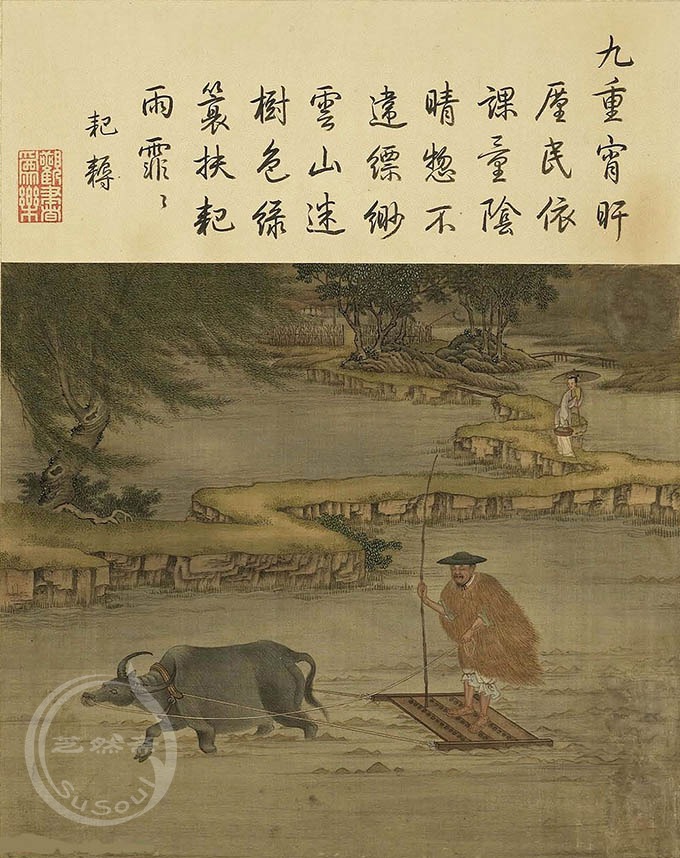 九重宵旰
厪民依
課量陰
晴惣不
違縹緲
雲山迷
樹色綠
蓑扶耙
雨霏〻
耙耨
觀書
為樂
芝然斋
SuSoul